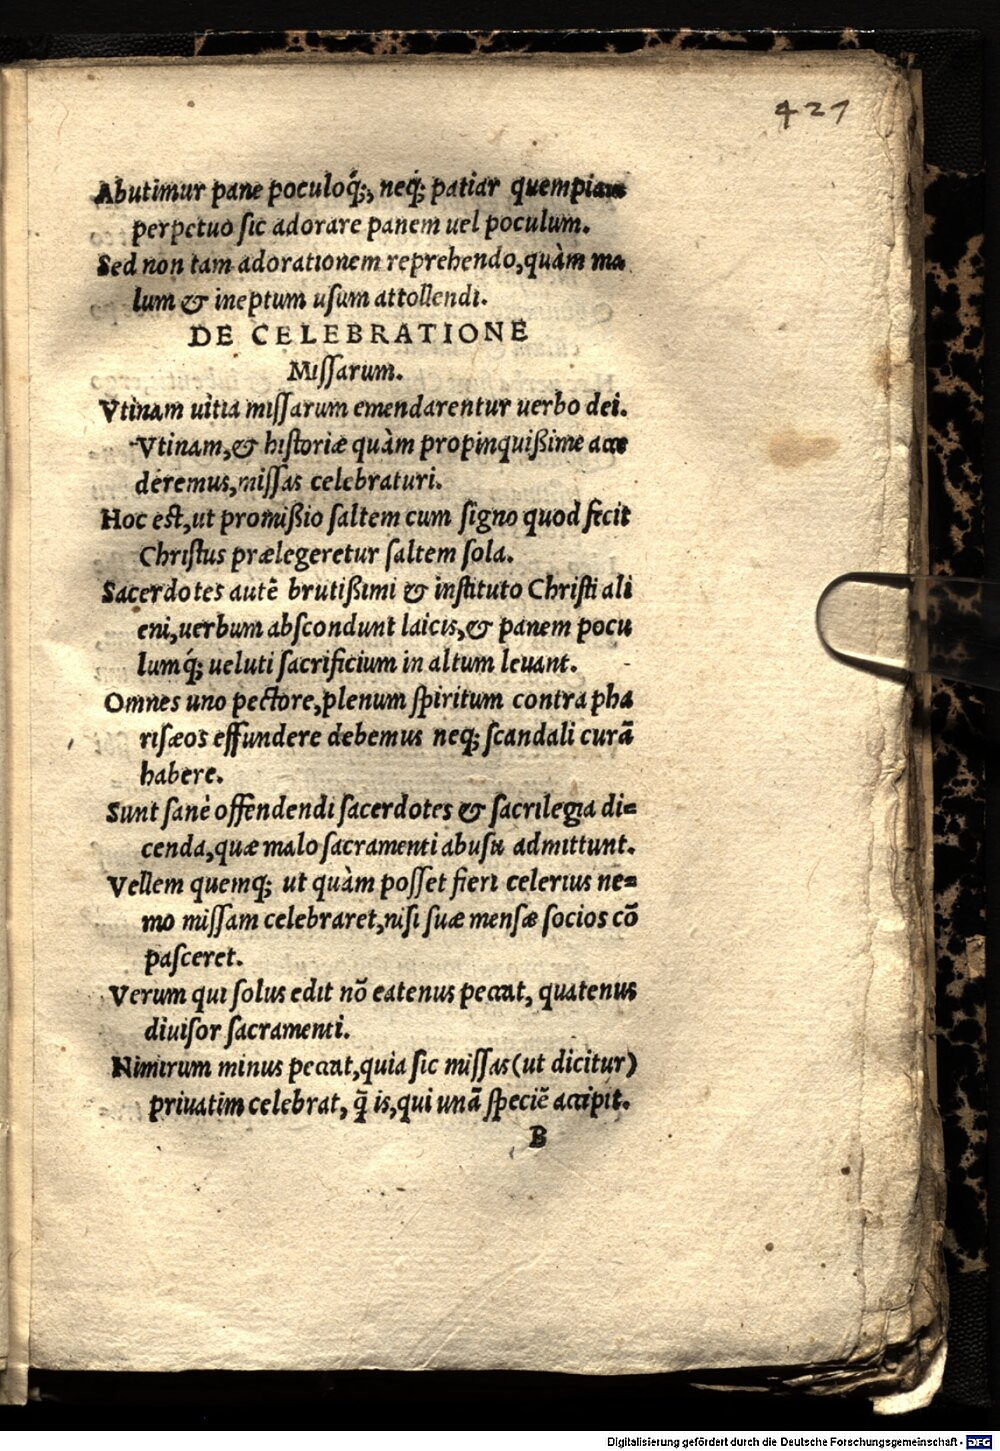 421
Abutimur pane poculoq́;, neq; patiar quempiam
perpetuo ſic adorare panem uel poculum.
Sed non tam adorationem reprehendo,quàm ma
lum & ineptum uſum attollendi.
DE CELEBRATIONE
Miſſarum.
Vtinam uitia miſſarum emendarentur uerbo dei.
Vtinam,& hiſtoriæ quàm propinquißime acce
deremus,miſſas celebraturi.
Hoc est,ut promißio ſaltem cum ſigno quod fecit
Chriſtus prælegeretur ſaltem ſola.
Sacerdotes autē brutißimi & inſtituto Chriſti ali
eni,uerbum abſcondunt laicis,& panem pocu
lumq́; ueluti ſacrificium in altum leuant.
Omnes uno pectore,plenum ſpiritum contra pha
riſæos effundere debemus neq; ſcandali curā
habere.
Sunt ſanè offendendi ſacerdotes & ſacrilegia di=
cenda,quæ malo ſacramenti abuſu admittunt.
Vellem quemq; ut quàm poſſet fieri celerius ne=
mo miſſam celebraret,niſi ſuæ menſæ ſocios cō
paſceret.
Verum qui ſolus edit nō eatenus peccat, quatenus
diuiſor ſacramenti.
Nimirum minus peccat,quia ſic miſſas(ut dicitur)
priuatim celebrat, q̄ is,qui unā ſpeciē accipit.
B
Digitalisierung gefördert durch die Deutsche Forschungsgemeinschaft - DFG